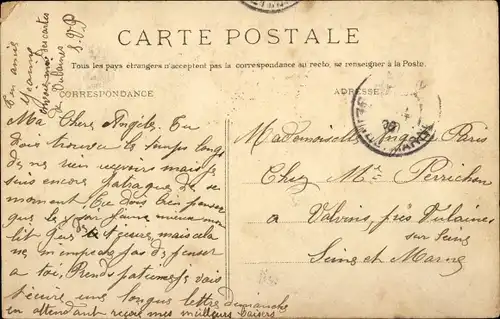 CARTE POSTALE
Tous les pays étrangers n'acceptent pas la correspondance au recto, se renseigner à la Poste.
CORRESPONDANCE
ADRESSE
Ton amie
Jeanne
des cartes
de Vulaines S.V.P
Ma Chere Angèle, Tu
dois trouver le temps long
de ne rien recevoir mais je
suis encore patraque de ce
moment Tu dois bien penser
que je faire mieux mon
lit que de t'ecrire, mais cela
ne m'empeche pas de penser
a toi, Prends patience je vais
t'ecrire une longue lettre dimanche
en attendant reçois mes meilleurs baisers
Mademoiselle Paris
Chez Mme Perrichon
a Valvins, près Vulaines
sur Seine
Seine et Marne